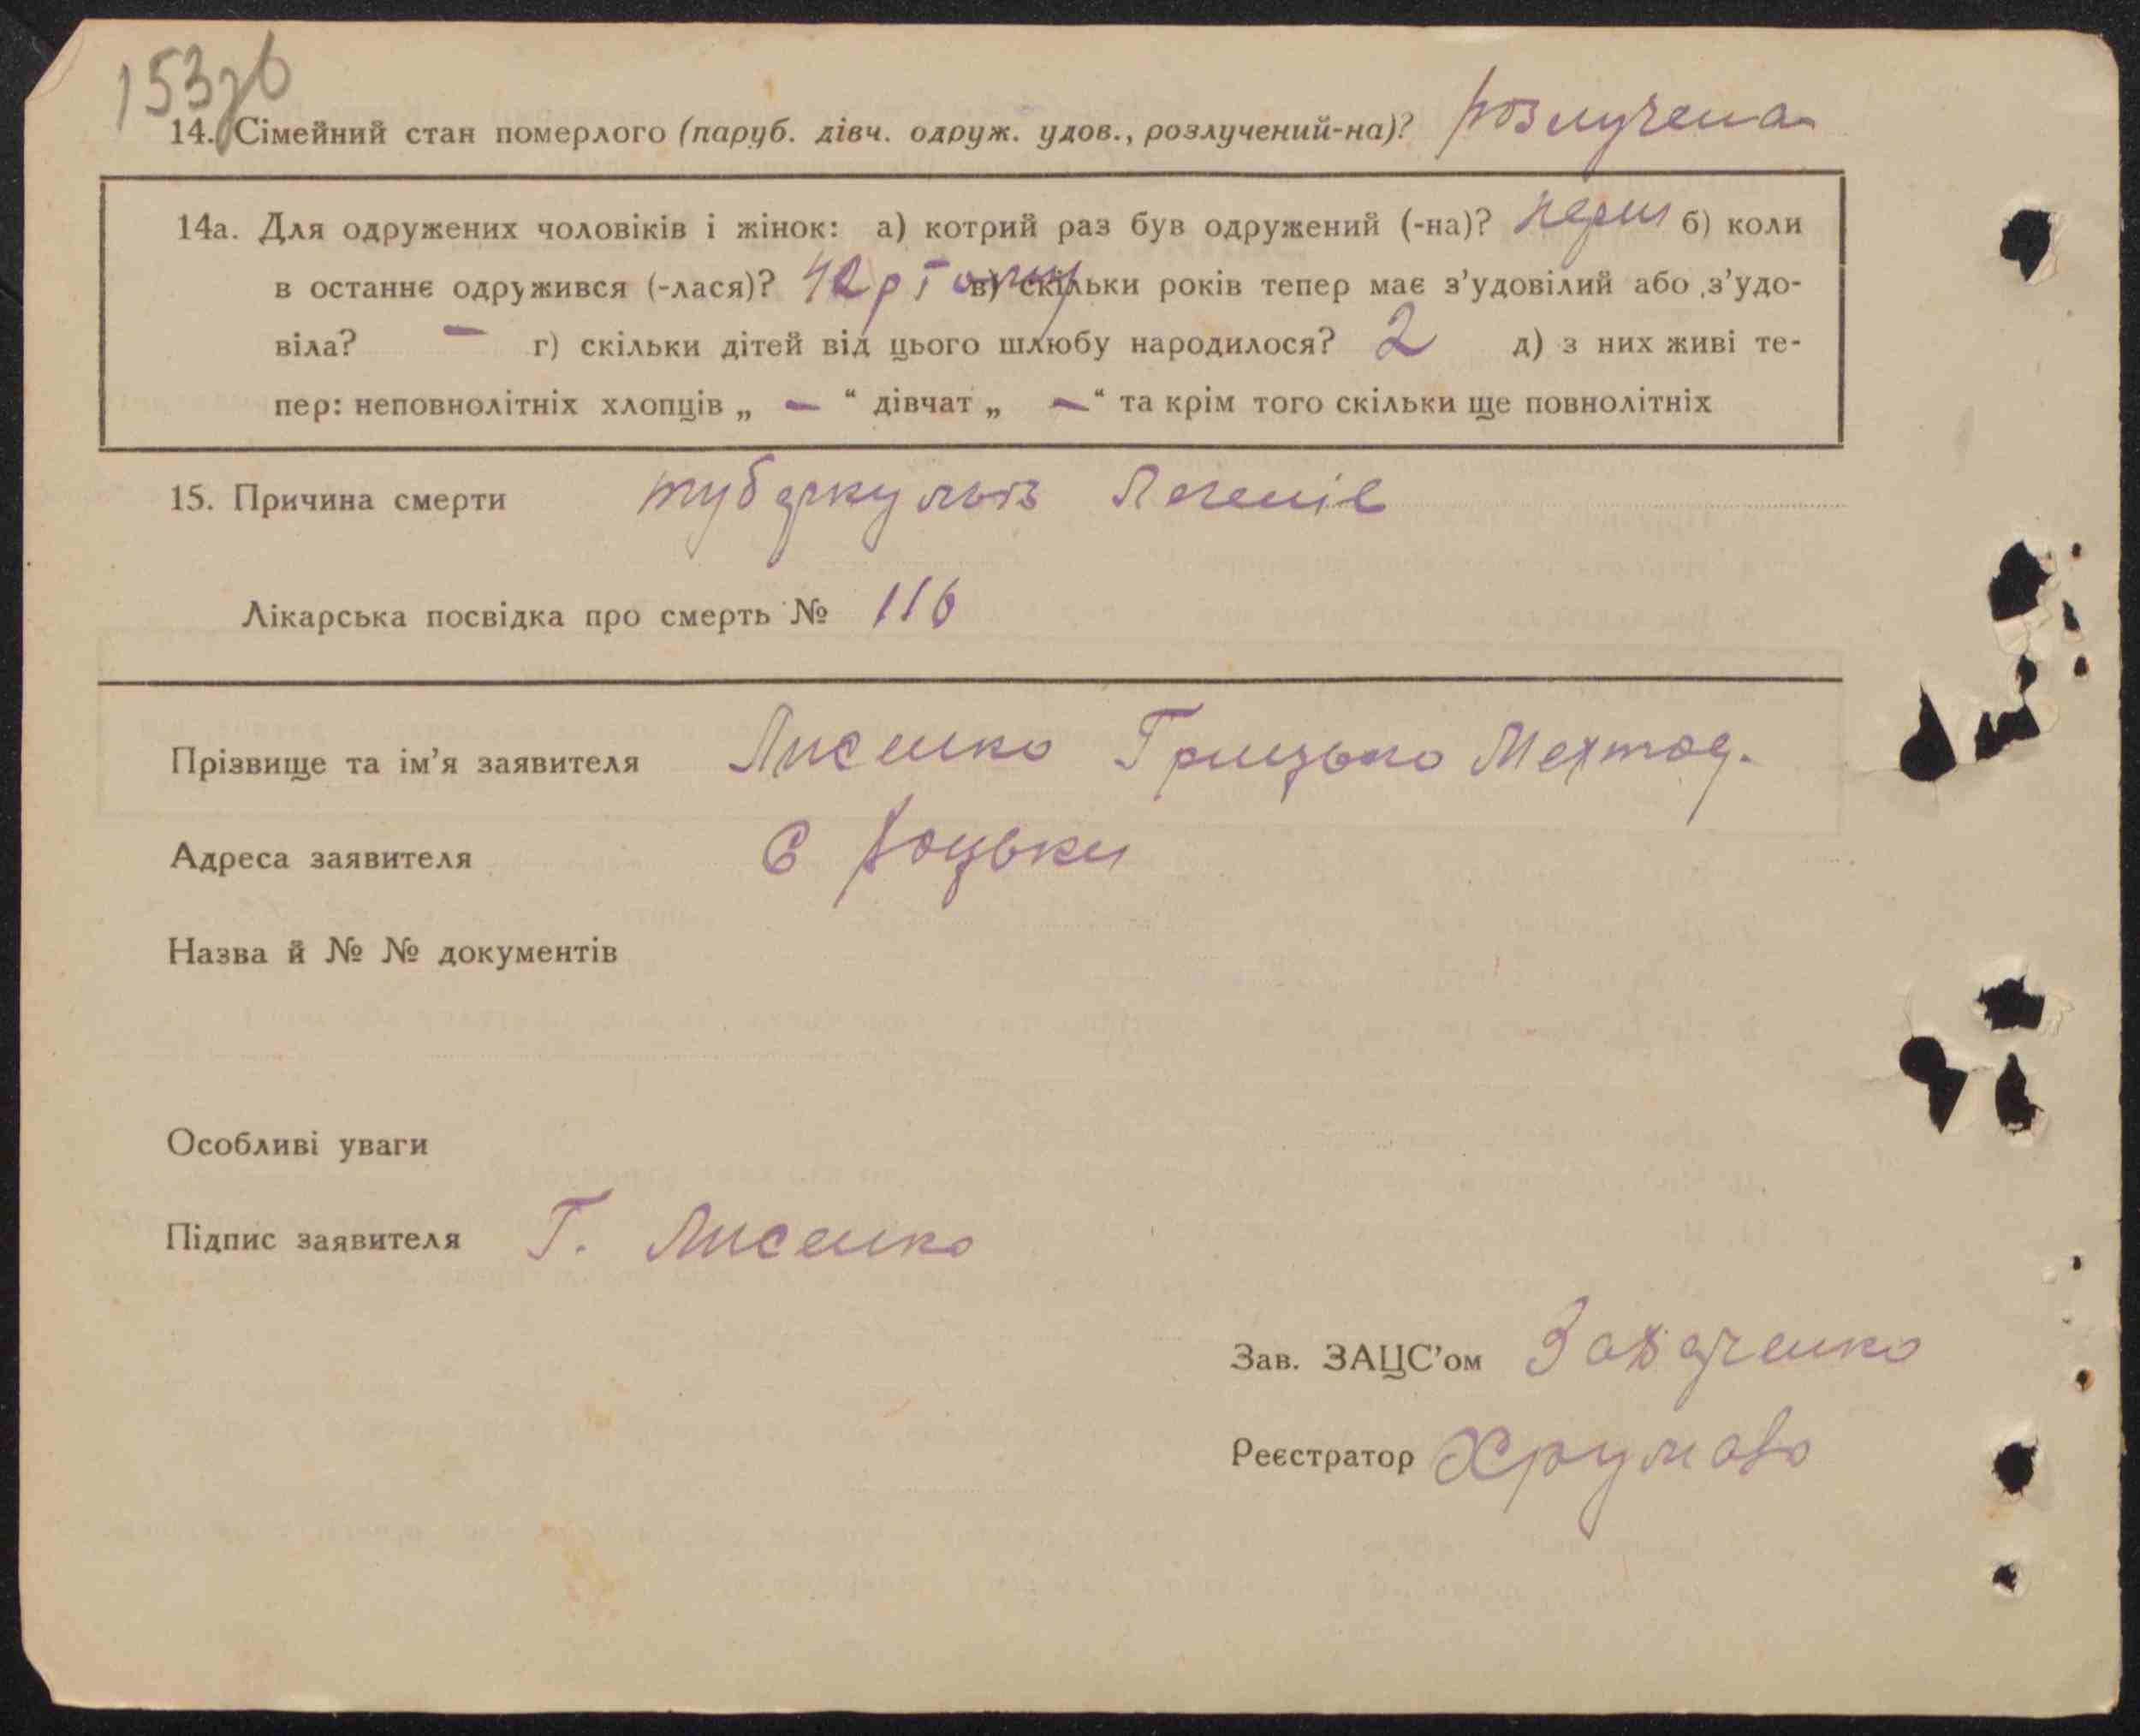 153зв
14. Сімейний стан померлого (паруб. дівч. одруж. удов., розлучений-на)? розлучена
14а. Для одружених чоловіків і жінок: а) котрий раз був одружений (-на)? перш б) коли
в останнє одружився (-лася)? в) скільки років тепер має з’удовілий або з’удо-
віла? — г) скільки дітей від цього шлюбу народилося? 2 д) з них живі те-
пер: неповнолітніх хлопців „ — “ дівчат „ — “ та крім того скільки ще повнолітніх
15. Причина смерти туберкульоз Легенів
Лікарська посвідка про смерть № 116
Прізвище та ім’я заявителя Лисенко Грицько
Адреса заявителя с
Назва й № № документів
Особливі уваги
Підпис заявителя Г. Лисенко
Зав. ЗАЦС’ом
Реєстратор